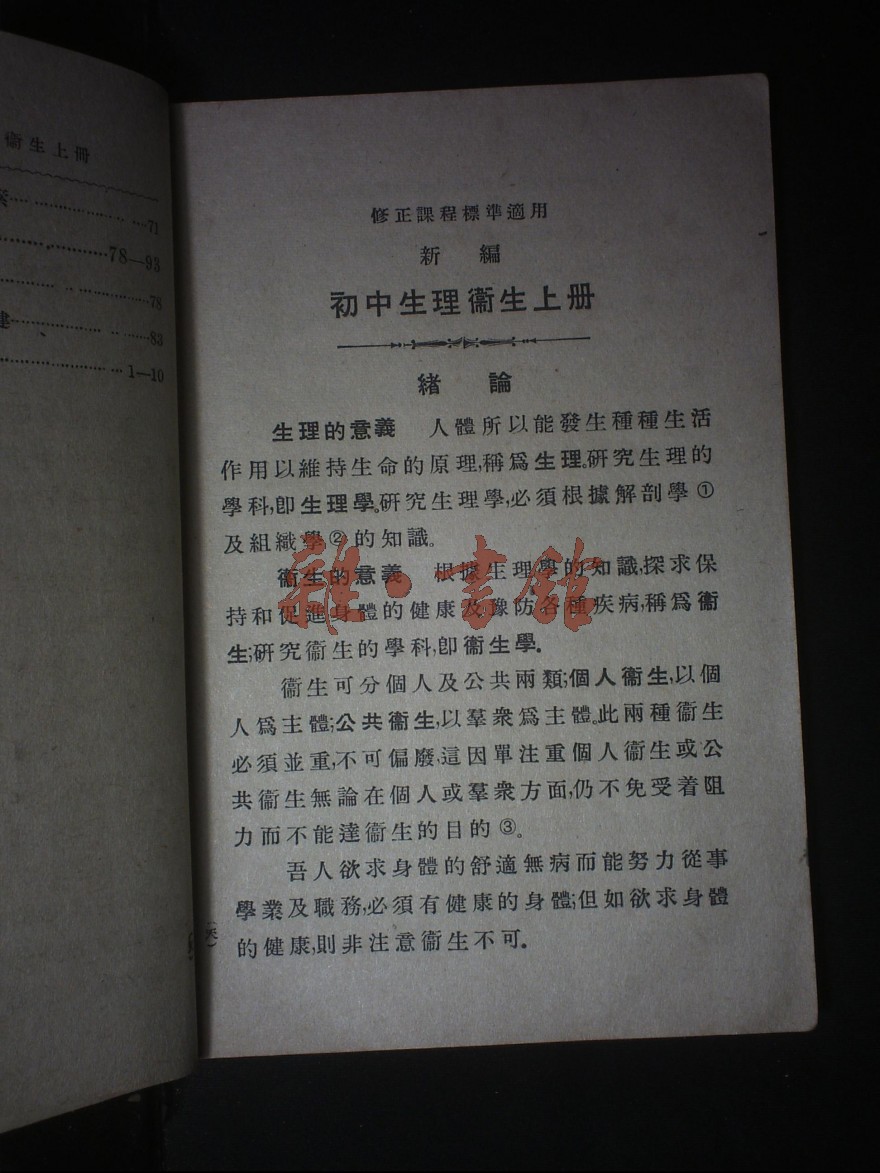 衞生上冊
71
78—93
78
83
1—10
修正課程標準適用
新 編
初中生理衞生上册
緒 論
生理的意義 人體所以能發生種種生活
作用以維持生命的原理,稱爲生理。研究生理的
學科,卽生理學。硏究生理學,必須根據解剖學①
及組織學②的知識。
衞生的意義 根據生理學的知識,探求保
持和促進身體的健康及豫防各種疾病,稱爲衞
生;硏究衞生的學科,卽衞生學。
衞生可分個人及公共兩類;個人衞生,以個
人爲主體;公共衞生,以羣衆爲主體。此兩種衞生
必須並重,不可偏廢,這因單注重個人衞生或公
共衞生無論在個人或羣衆方面,仍不免受着阻
力而不能達衞生的目的③。
吾人欲求身體的舒適無病而能努力從事
學業及職務,必須有健康的身體;但如欲求身體
的健康,則非注意衞生不可。
雜·書館